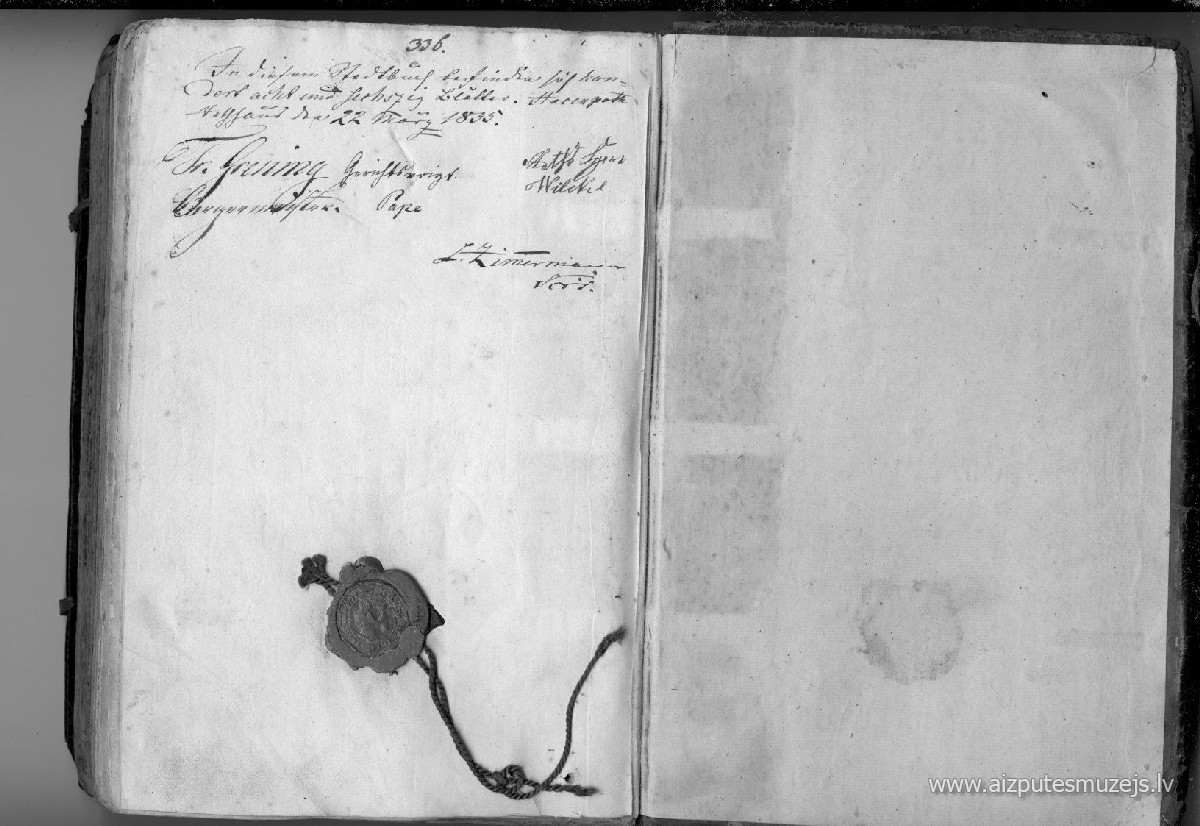 336.
In diesem Stadtbuch befinden sich hun-
dert acht und sechszig Blätter. Hasenpoth
Rathhaus den 22 März 1835.
Fr. Grening Gerichtsvoigt.
Wilckel
Bürgermeister. Pape
L. Zimermann
Secr.
www.aizputesmuzejs.lv